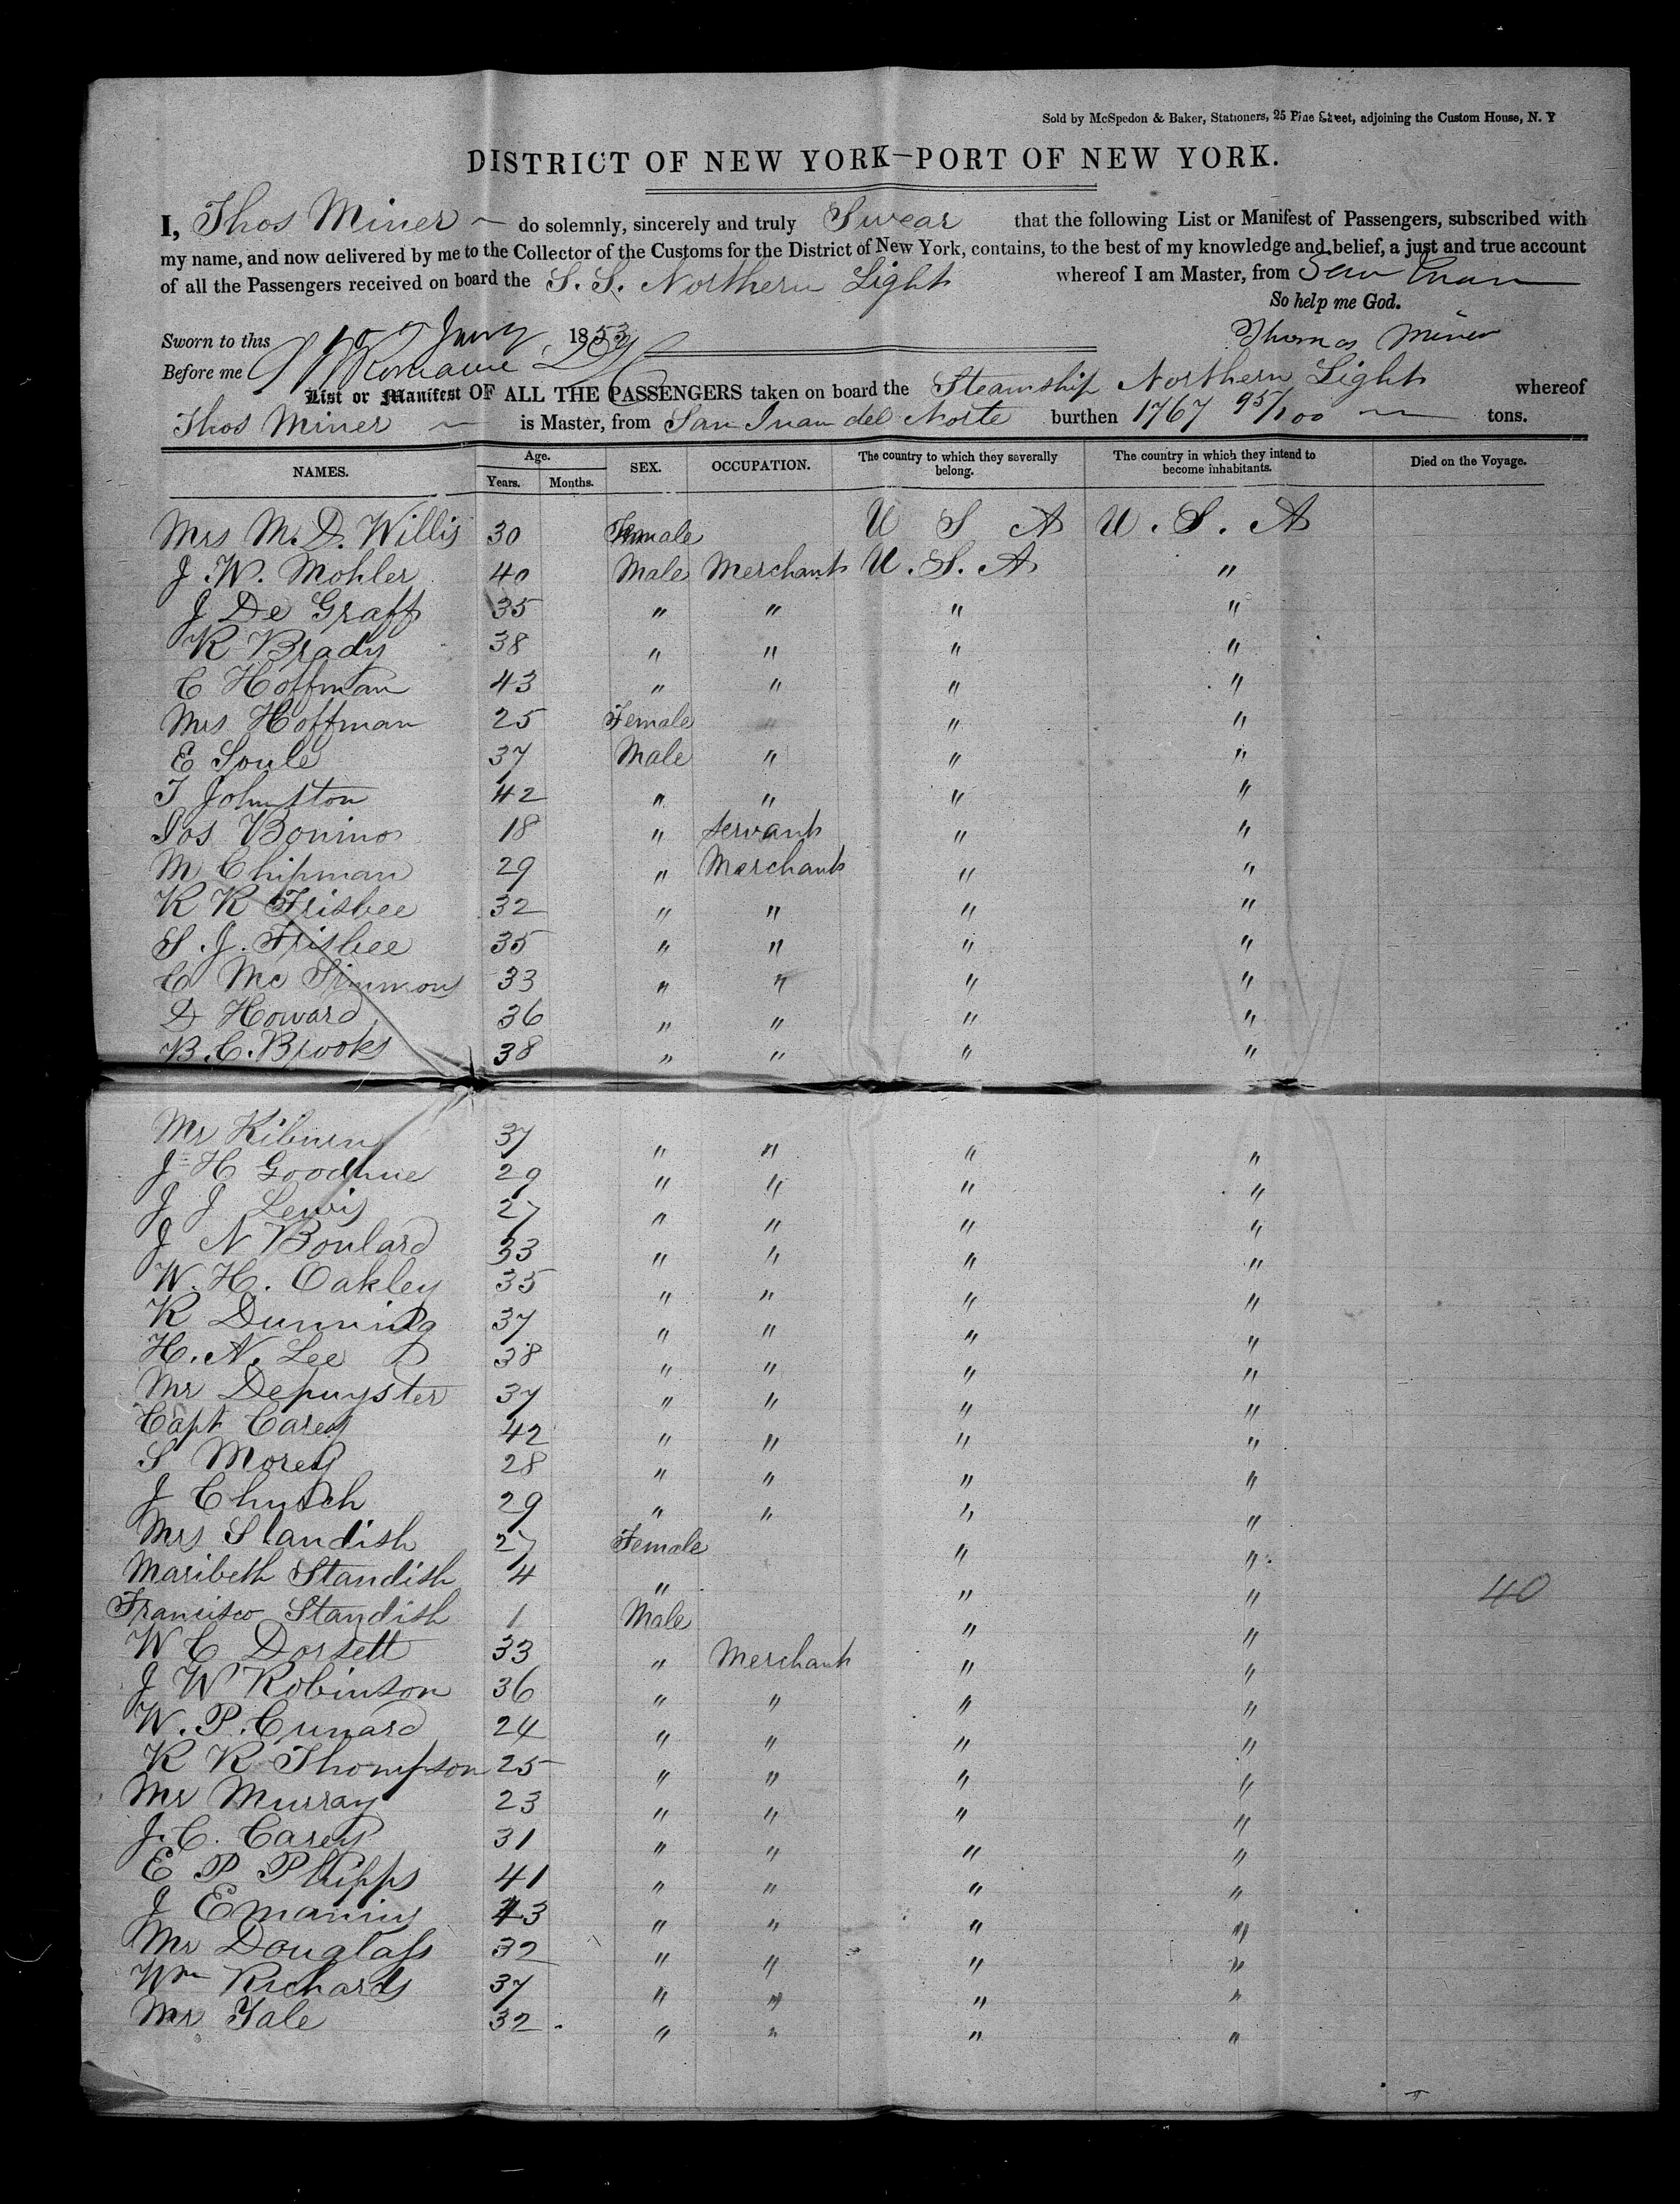 Sold by McSpedon & Baker, Stationers, 25 Pine Street, adjoining the Custom House, N. Y
DISTRICT OF NEW YORK—PORT OF NEW YORK.
I, Thos Miner do solemnly, sincerely and truly Swear that the following List or Manifest of Passengers, subscribed with
my name, and now delivered by me to the Collector of the Customs for the District of New York, contains, to the best of my knowledge and belief, a just and true account
of all the Passengers received on board the S. S. Northern Light whereof I am Master, from San Juan
So help me God.
Sworn to this 10 Jany 1853 Thomas Miner
Before me Romaine
List or Manifest OF ALL THE PASSENGERS taken on board the Steamship Northern Light whereof
Thos Miner is Master, from San Juan del Norte burthen 1767 95/100 tons.
NAMES. Age. Years. Months. SEX. OCCUPATION. The country to which they severally belong. The country in which they intend to become inhabitants. Died on the Voyage.
Mrs M. D. Willis 30 Female U S A U. S. A
J. W. Mohler 40 Male Merchant U. S. A "
J De Graff 35 " " " "
R Brady 38 " " " "
C Hoffman 43 " " " "
Mrs Hoffman 25 Female " "
E Soule 37 Male " " "
T Johnston 42 " " " "
Jos Bonino 18 " Servant " "
M Chipman 29 " Merchant " "
R R Frisbee 32 " " " "
S. J. Frisbee 35 " " " "
C Mc Simmons 33 " " " "
D Howard 36 " " " "
B. C. Brooks 38 " " " "
Mr Kiburn 37 " " " "
J H Goodhue 29 " " " "
J J Lewis 27 " " " "
J N Boulard 33 " " " "
W. H. Oakley 35 " " " "
R Dunning 37 " " " "
H. N. Lee 38 " " " "
Mr Depuyster 37 " " " "
Capt Carey 42 " " " "
S Morey 28 " " " "
J Church 29 " " " "
Mrs Standish 27 Female " "
Maribeth Standish 4 " " " 40
Francisco Standish 1 Male " "
W C Dorsett 33 " Merchant " "
J W Robinson 36 " " " "
W. P. Cunard 24 " " " "
R R Thompson 25 " " " "
Mr Murray 23 " " " "
J. C. Carey 31 " " " "
E P Phipps 41 " " " "
J Emanins 43 " " " "
Mr Douglass 32 " " " "
Wm Richards 37 " " " "
Mr Yale 32 " " " "